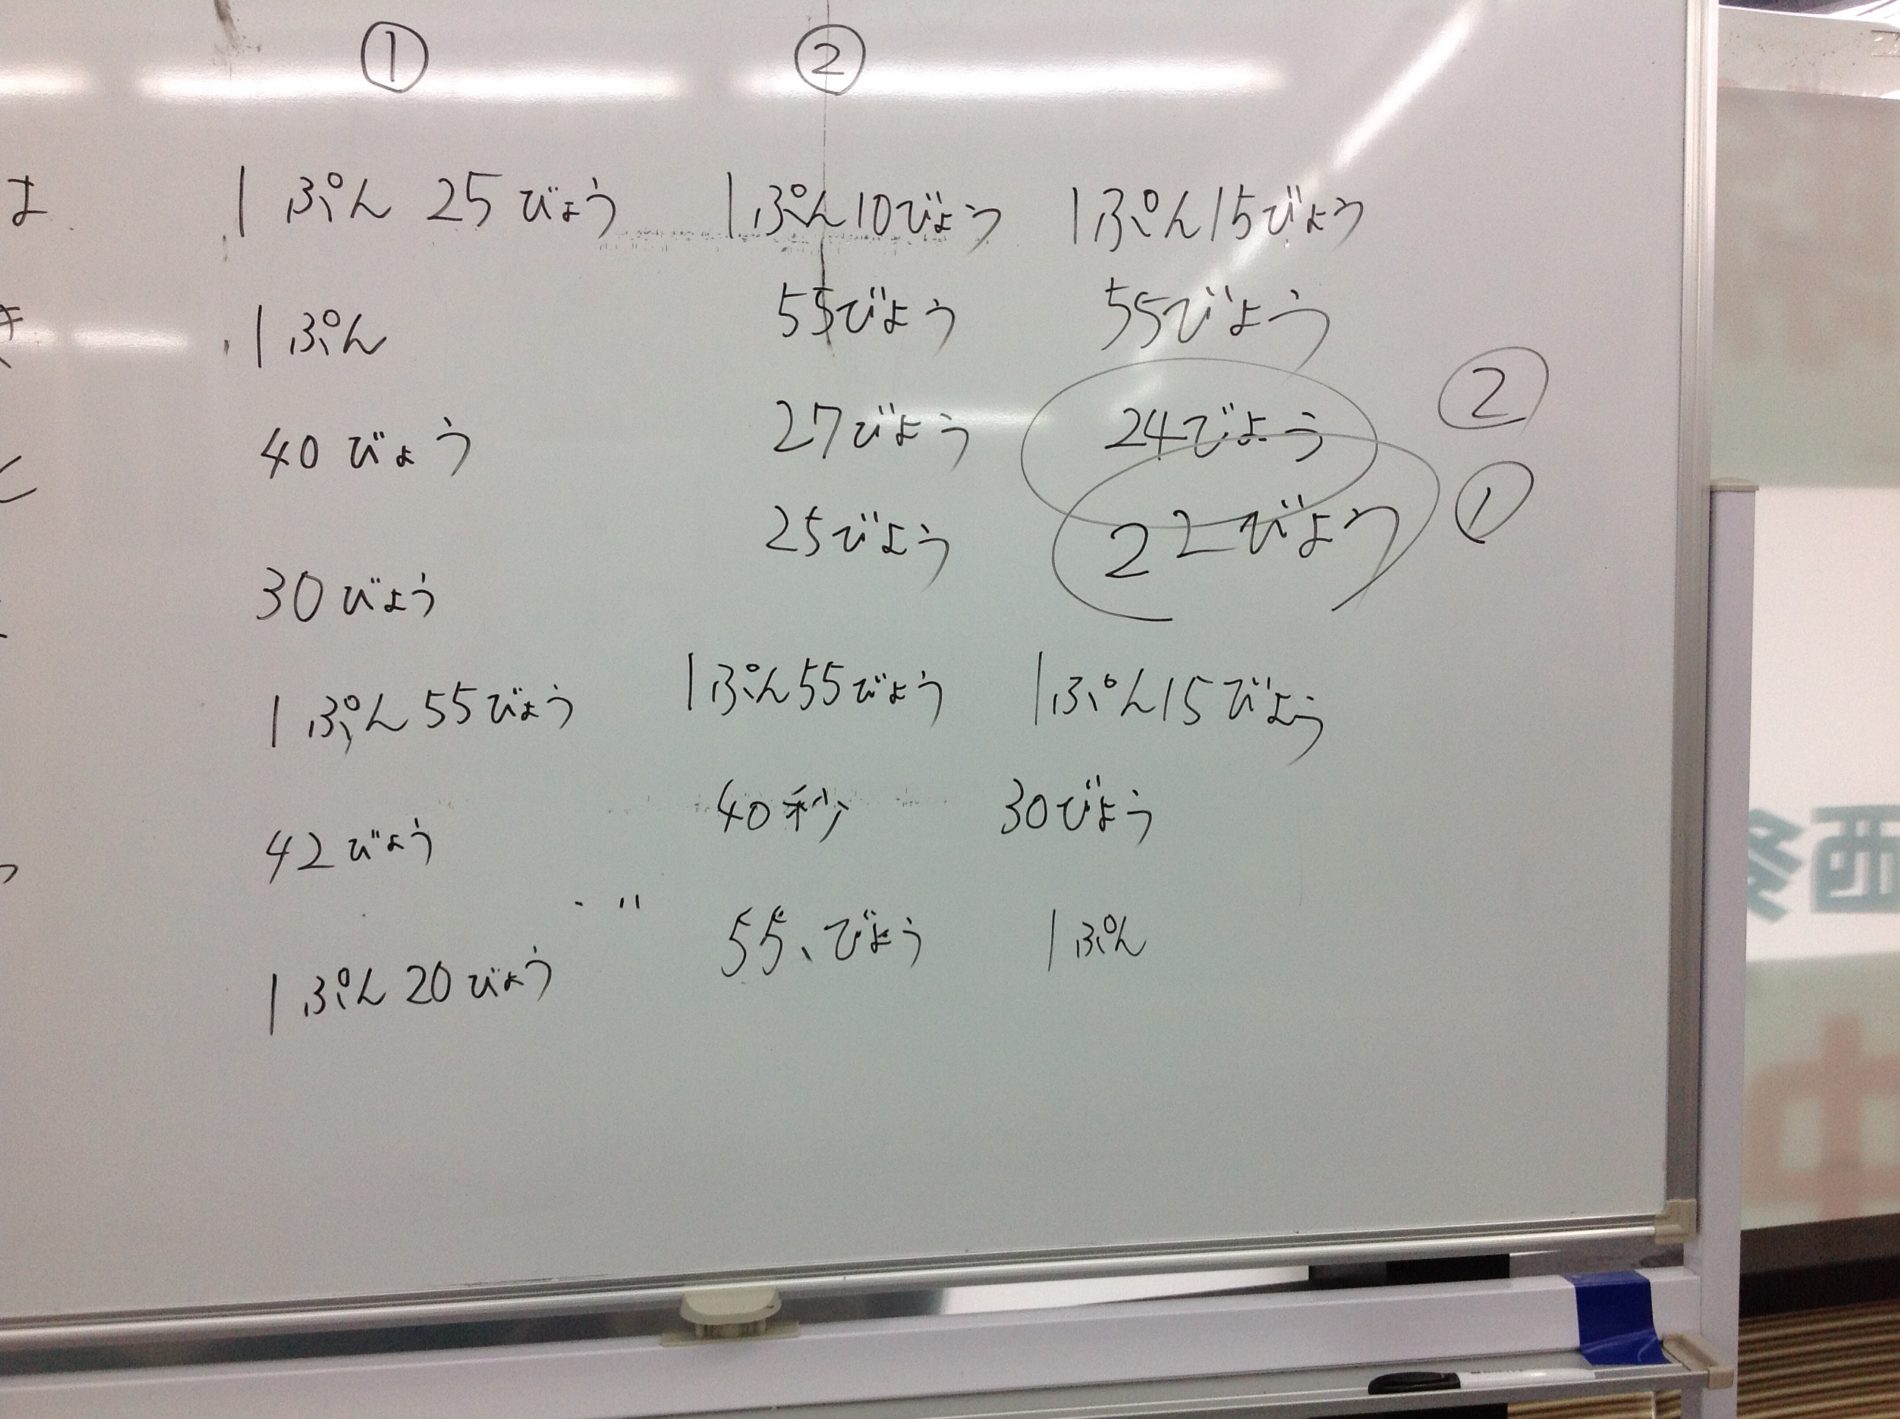 ① ②
は 1ぷん 25びょう 1ぷん10びょう 1ぷん15びょう
1ぷん 55びょう 55びょう
40びょう 27びょう 24びょう ②
25びょう 22びょう ①
30びょう
1ぷん 55びょう 1ぷん55びょう 1ぷん15びょう
42びょう 40秒 30びょう
1ぷん 20びょう 55、びょう 1ぷん
西
中